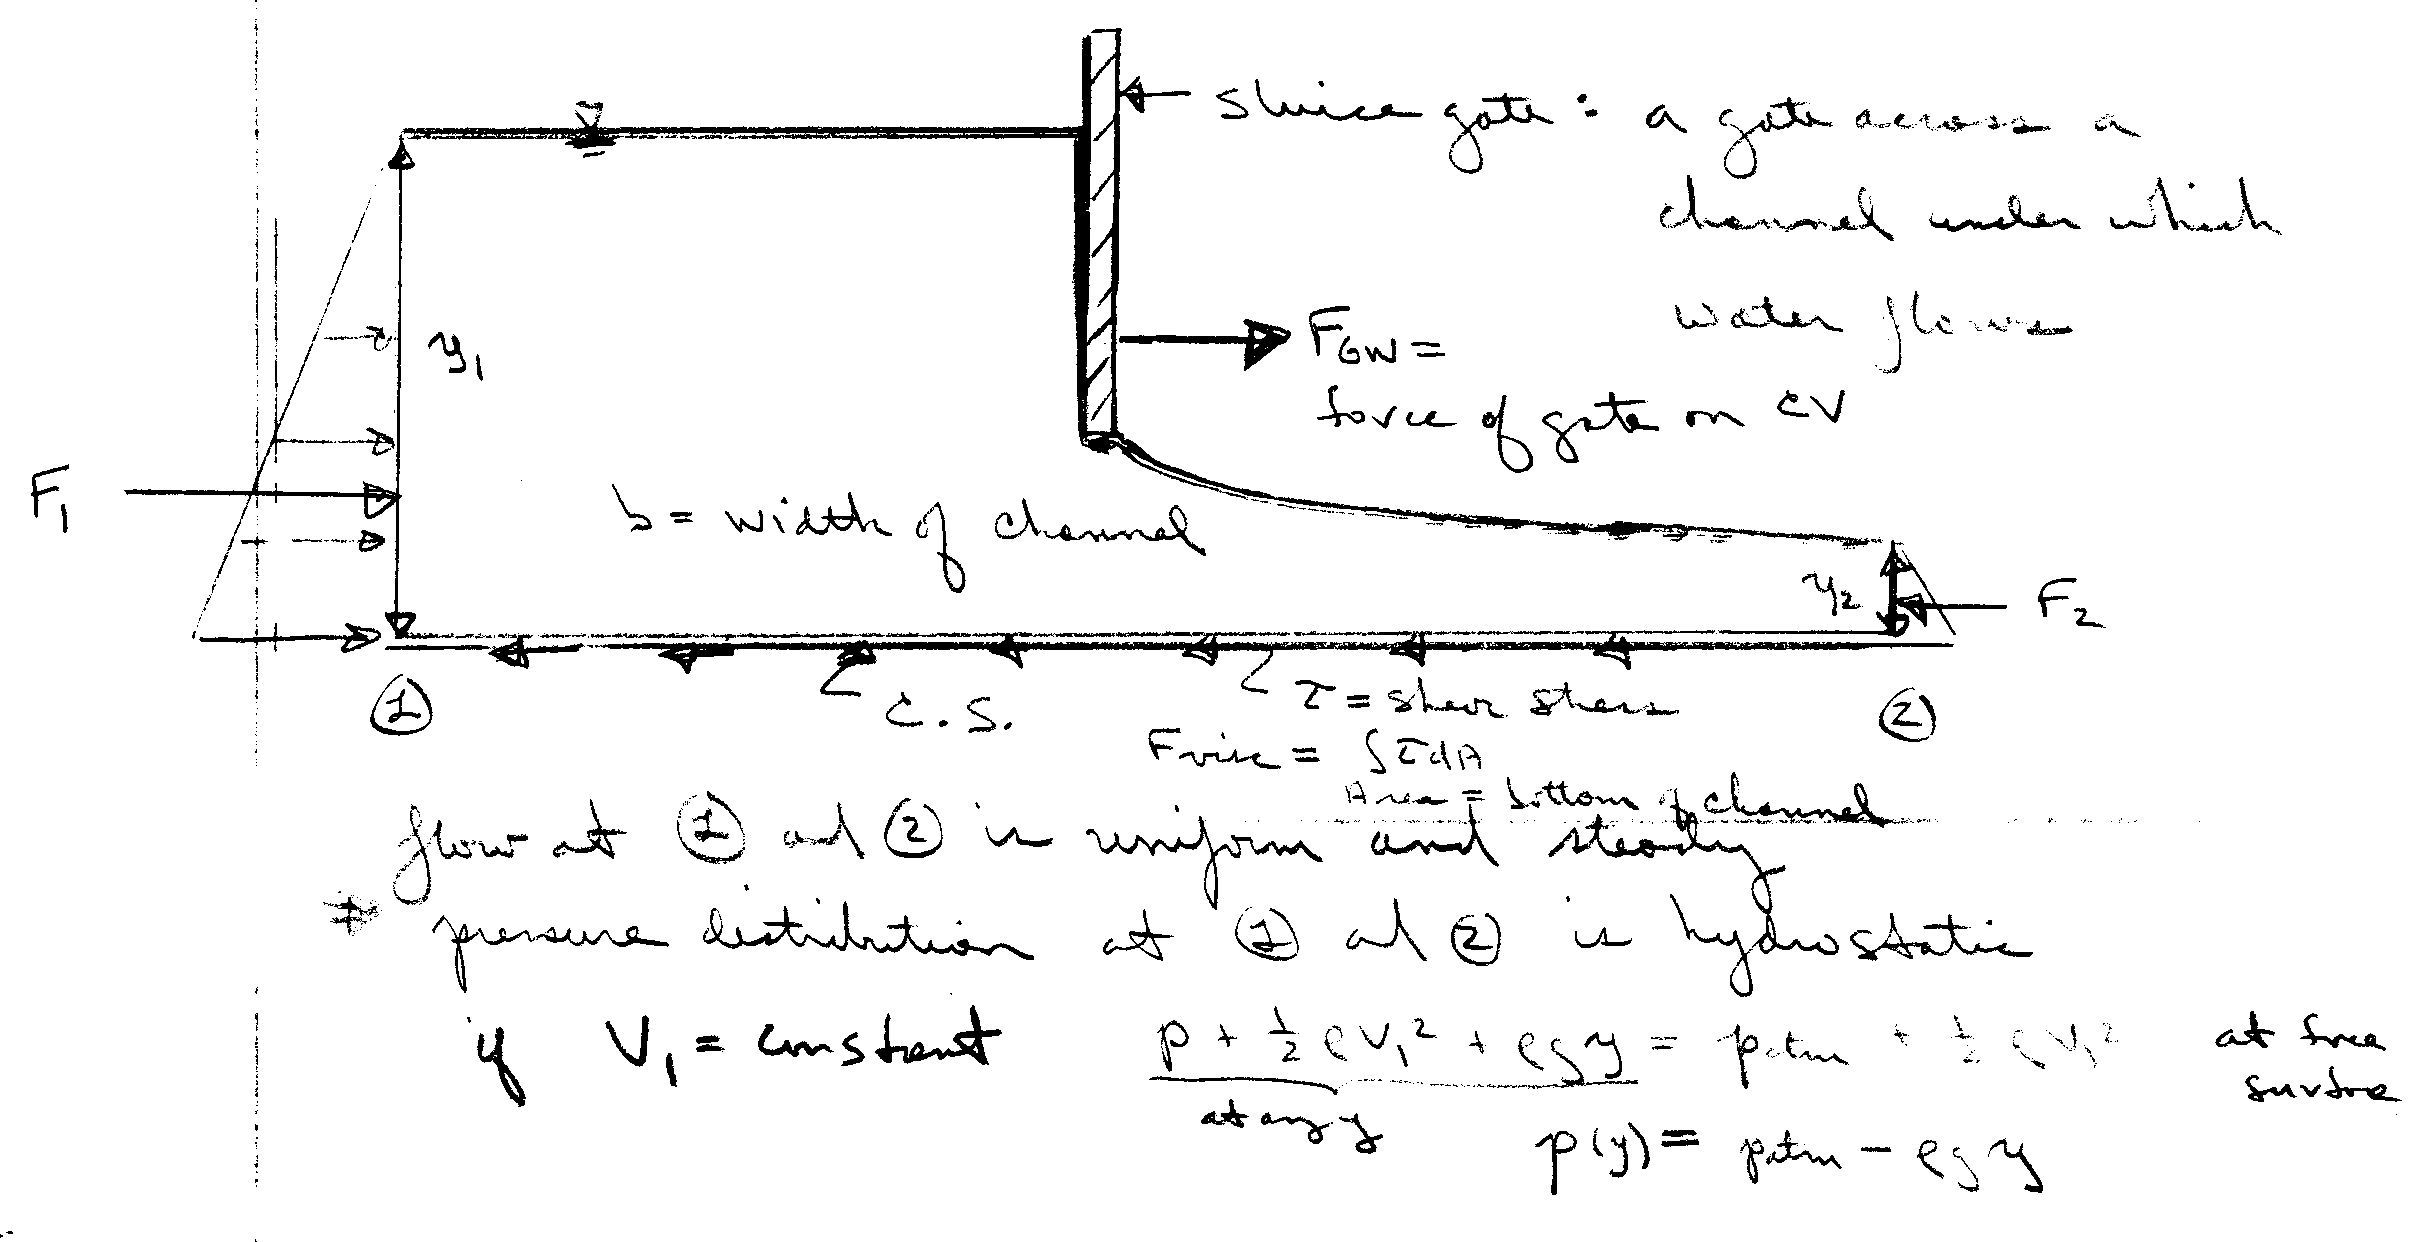 sluice gate : a gate across a
channel under which
water flows
y₁
F_GW =
force of gate on CV
F₁
b = width of channel
y₂
F₂
①
C.S.
τ = shear stress
②
Fvisc = ∫τdA
Area = bottom of channel
flow at ① and ② is uniform and steady
⇒ pressure distribution at ① and ② is hydrostatic
if V₁ = constant p + ½ρV₁² + ρgy = patm + ½ρV₁² at free
surface
at any y
p(y) = patm − ρgy